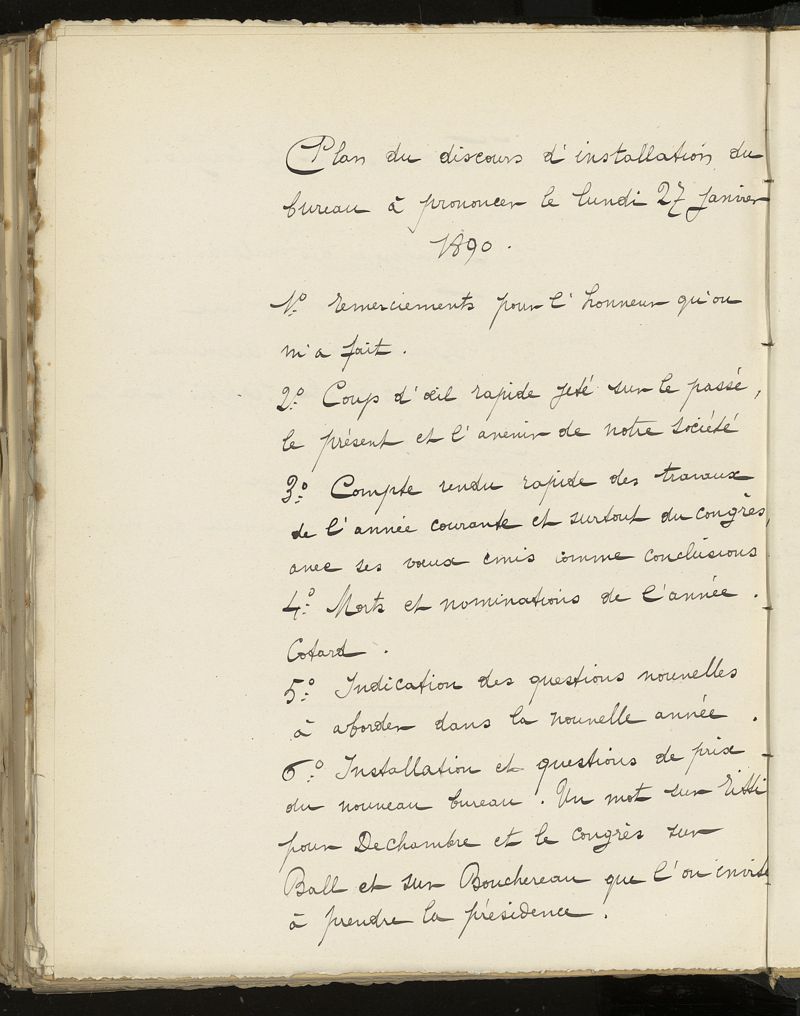 Plan du discours d'installation du
bureau à prononcer le lundi 27 janvier
1890.
1º. remerciements pour l'honneur qu'on
m'a fait.
2º. Coup d'œil rapide jeté sur le passé,
le présent et l'avenir de notre société
3º. Compte rendu rapide des travaux
de l'année courante et surtout du congrès,
avec ses vœux émis comme conclusions
4º. Morts et nominations de l'année.
Cotard.
5º. Indication des questions nouvelles
à aborder dans la nouvelle année.
6º. Installation et questions de prix
du nouveau bureau. Un mot sur Ritti
pour Dechambre et le congrès sur
Ball et sur Bouchereau que l'on invite
à prendre la présidence.